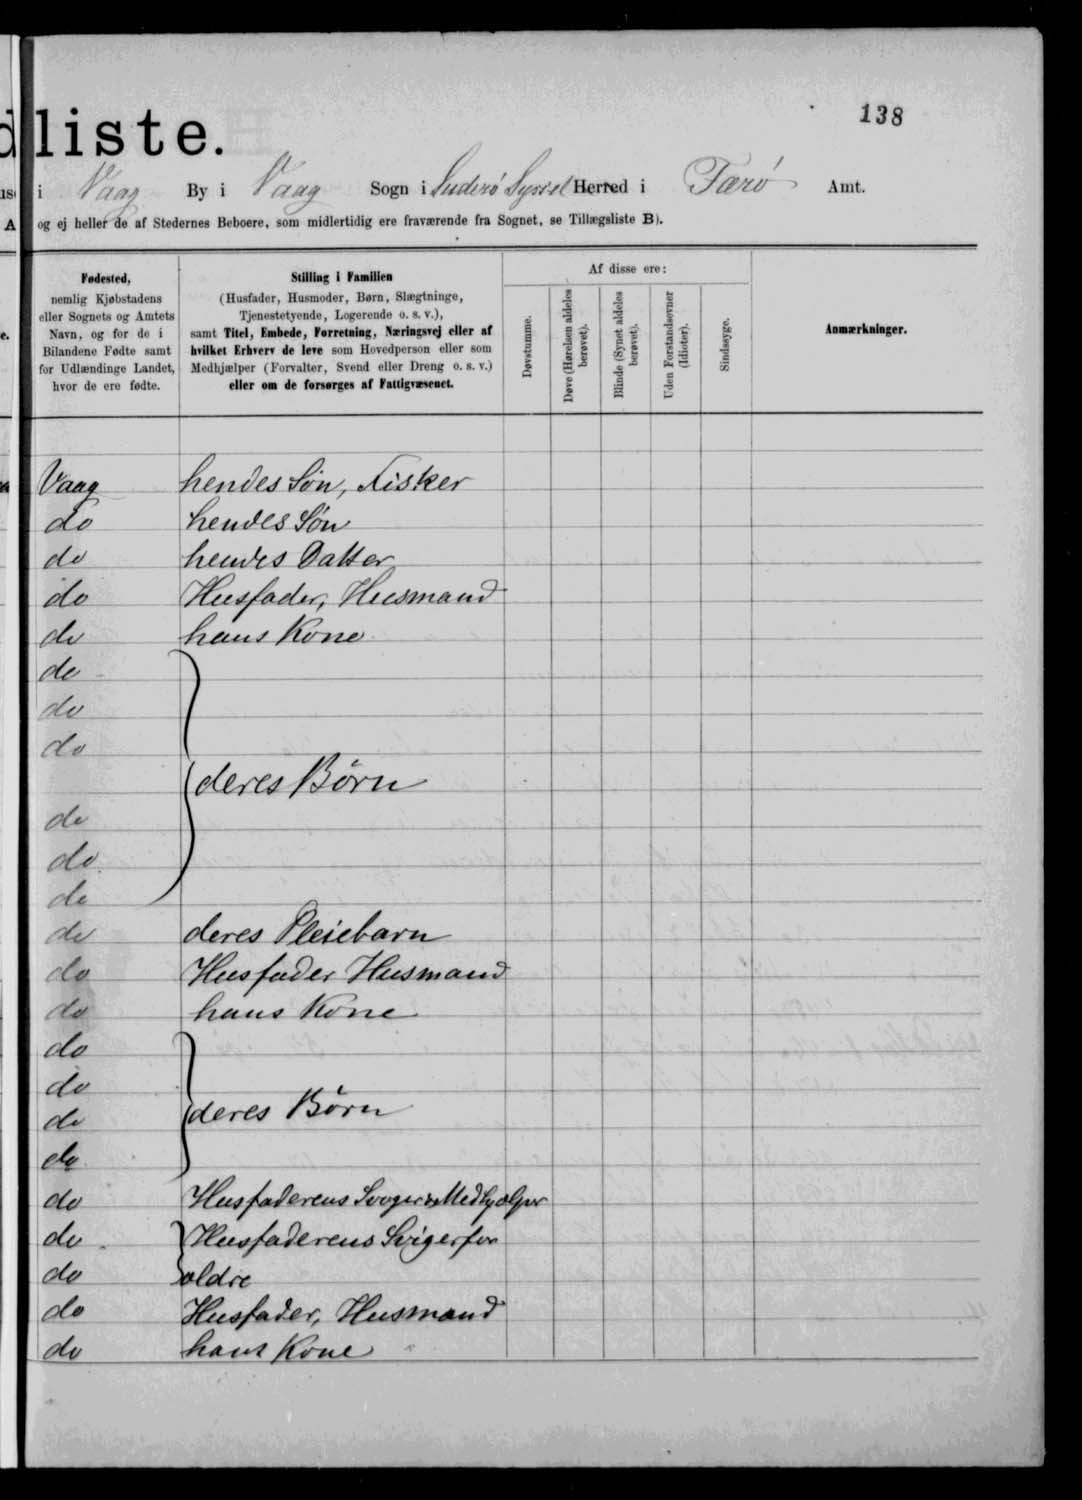 138
dliste.
i Vaag By i Vaag Sogn i Suderø Syssel Herred i Færø Amt.
A og ej heller de af Stedernes Beboere, som midlertidig ere fraværende fra Sognet, se Tillægsliste B).
Fødested,
nemlig Kjøbstadens
eller Sognets og Amtets
Navn, og for de i
Bilandene Fødte samt
for Udlændinge Landet,
hvor de ere fødte.
Stilling i Familien
(Husfader, Husmoder, Børn, Slægtninge,
Tjenestetyende, Logerende o. s. v.),
samt Titel, Embede, Forretning, Næringsvej eller af
hvilket Erhverv de leve som Hovedperson eller som
Medhjælper (Forvalter, Svend eller Dreng o. s. v.)
eller om de forsørges af Fattigvæsenet.
Af disse ere:
Døvstumme.
Døve (Hørelsen aldeles
berøvet).
Blinde (Synet aldeles
berøvet).
Uden Forstandsevner
(Idioter).
Sindssyge.
Anmærkninger.
Vaag hendes Søn, Fisker
do hendes Søn
do hendes Datter
do Husfader, Husmand
do hans Kone
do
do
do
deres Børn
do
do
do
do deres Pleiebarn
do Husfader Husmand
do hans Kone
do
do
do deres Børn
do
do Husfaderens Svoger Medhjælper
do Husfaderens Svigerfor
do ældre
do Husfader, Husmand
do hans Kone